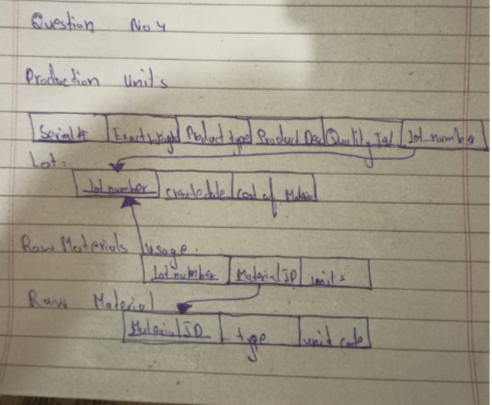 Question No 4
Production Units
Serial# Exact weight Product type Product Des Quality Tst lot number
Lot:
lot number create date cost of Material
Raw Materials usage.
lot number Material ID units
Raw Material
Material ID type unit code